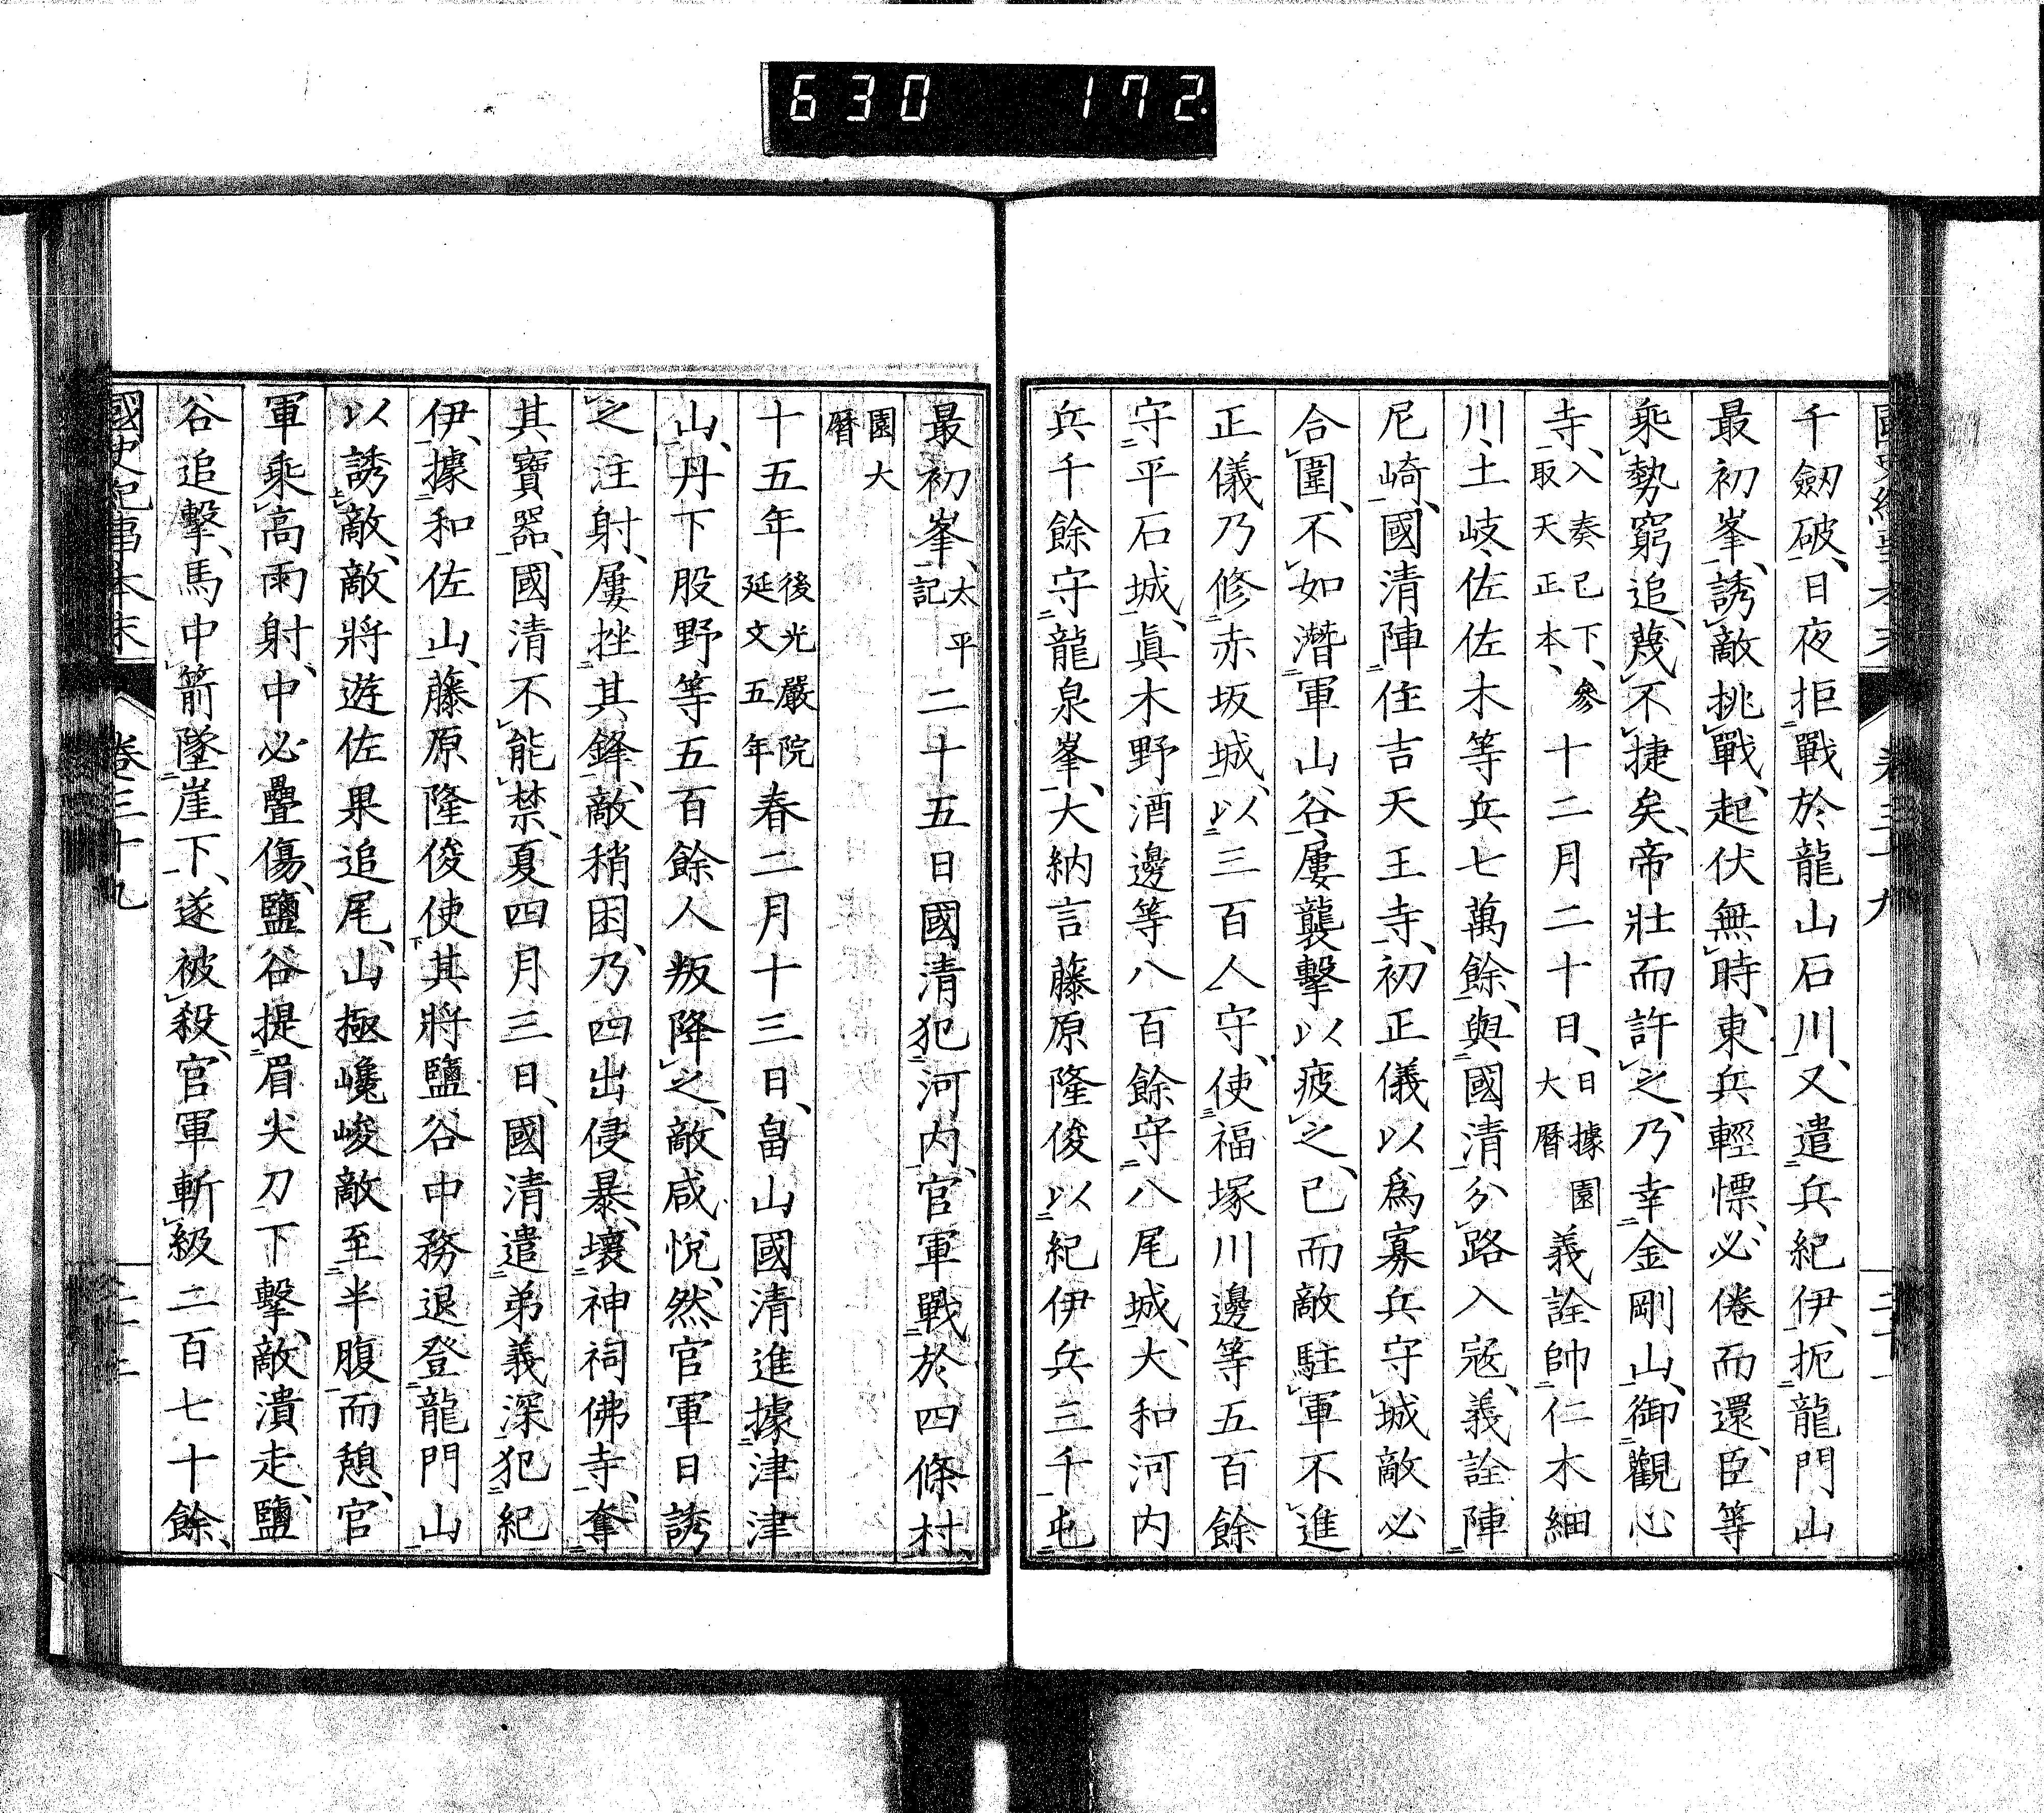 630 172.
千劒破、日夜拒戰於龍山石川、又遣兵紀伊、扼龍門山
最初峯、誘敵挑戰、起伏無時、東兵輕慓、必倦而還、臣等
乘勢窮追、蔑不捷矣、帝壯而許之、乃幸金剛山、御觀心
寺、入奏已下、參取天正本、十二月二十日、日據園大曆義詮帥仁木細
川、土岐、佐佐木等兵七萬餘、與國清分路入寇、義詮陣
尼崎、國清陣住吉天王寺、初正儀以爲寡兵守城敵必
合圍、不如潛軍山谷、屢襲擊以疲之、已而敵駐軍不進
正儀乃修赤坂城、以三百人守、使福塚川邊等五百餘
守平石城、眞木野酒邊等八百餘守八尾城、大和河内
兵千餘守龍泉峯、大納言藤原隆俊以紀伊兵三千屯
最初峯、太平記二十五日國清犯河内、官軍戰於四條村、
園大曆
十五年後光嚴院延文五年春二月十三日、畠山國清進據津津
山、丹下股野等五百餘人叛降之、敵咸悅、然官軍日誘
之注射、屢挫其鋒、敵稍困、乃四出侵暴、壞神祠佛寺、奪
其寶器、國清不能禁、夏四月三日、國清遣弟義深犯紀
伊、據和佐山、藤原隆俊使其將鹽谷中務退登龍門山
以誘敵、敵將遊佐果追尾、山極巉峻敵至半腹而憩、官
軍乘高雨射、中必疊傷、鹽谷提眉尖刀下擊、敵潰走、鹽
谷追擊、馬中箭墜崖下、遂被殺、官軍斬級二百七十餘、
國史紀事本末 卷三十九